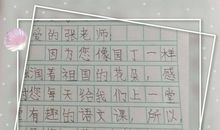 爱的张老师:
因为您像园丁一样
滋润着祖国的花朵,感
谢您每天给我们上一堂
堂有趣的语文课,所以